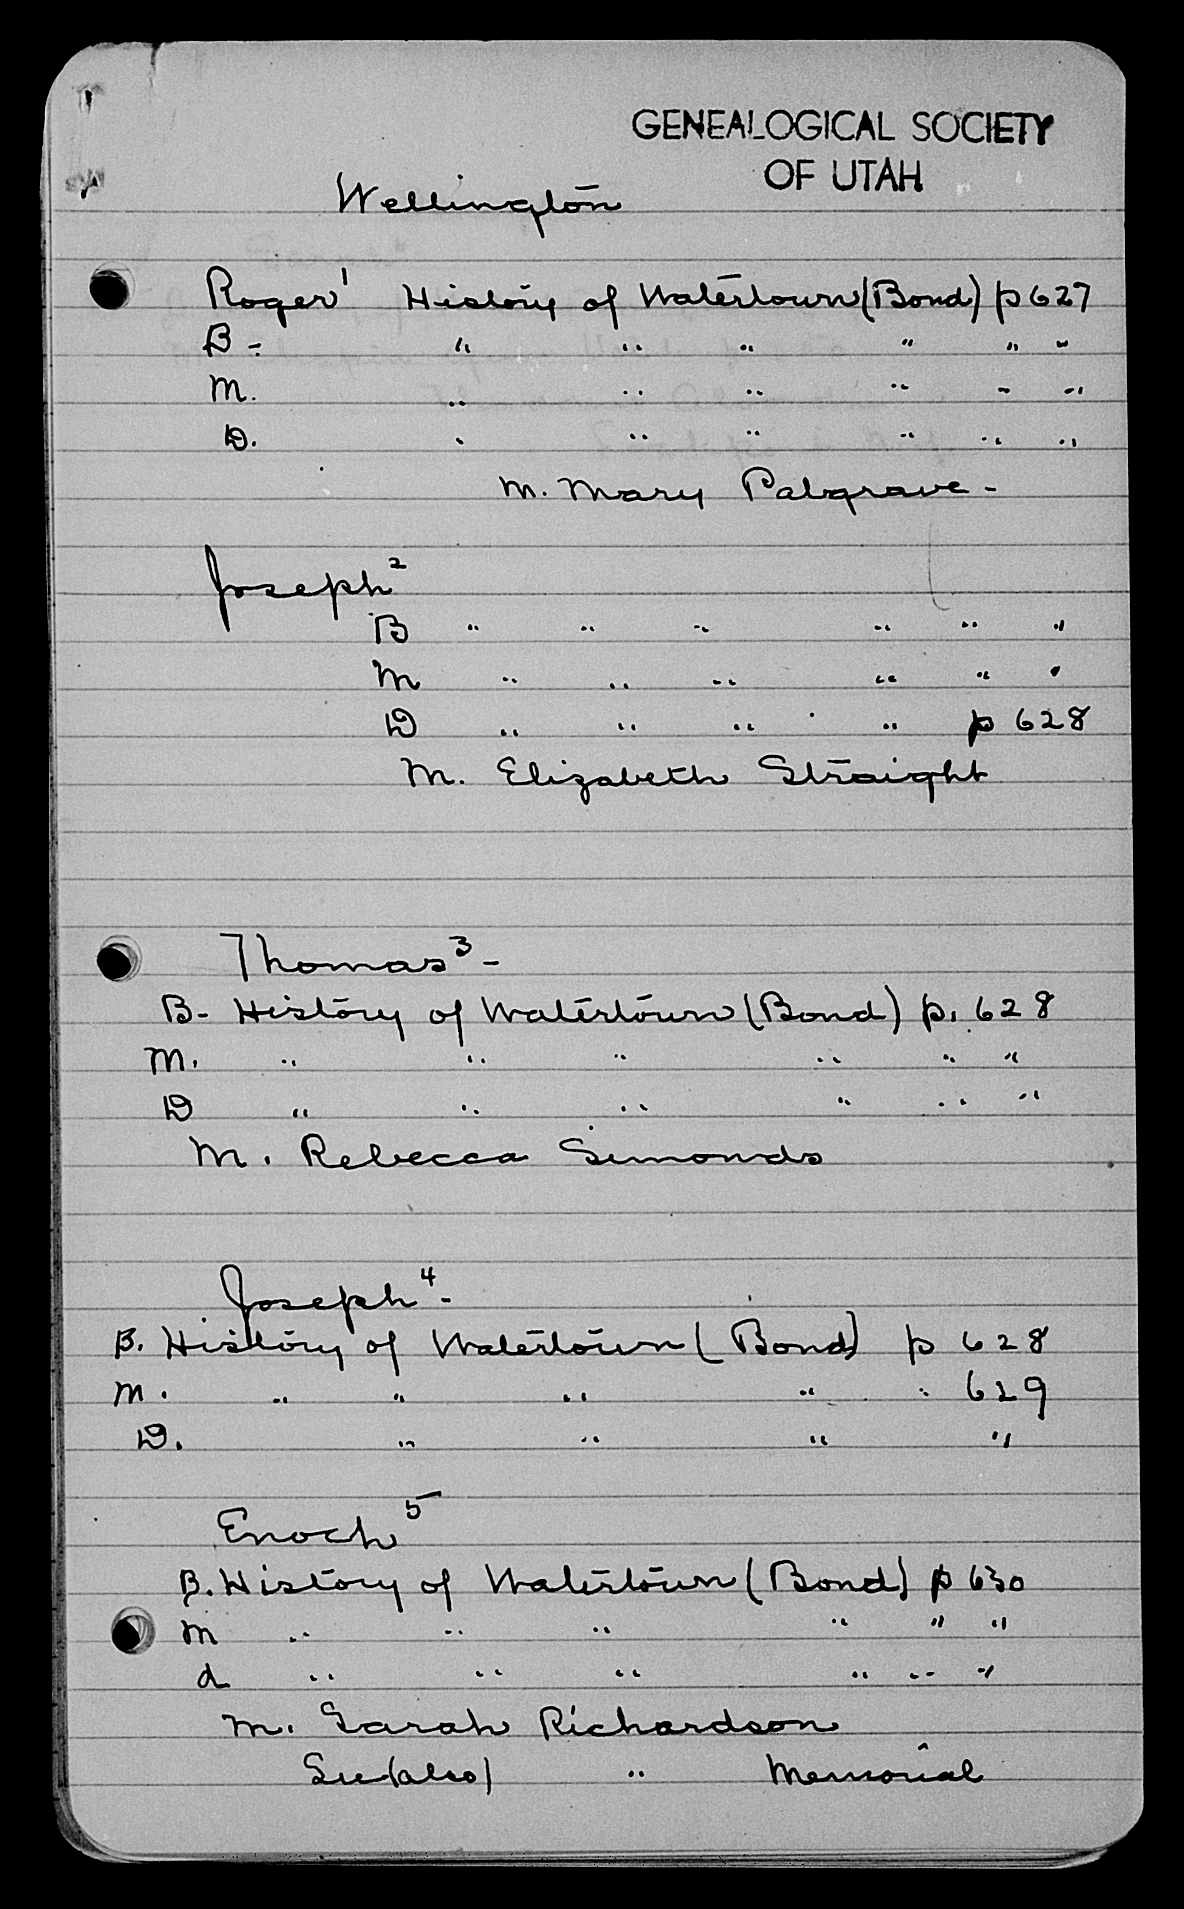 GENEALOGICAL SOCIETY
OF UTAH
Wellington
Roger¹ History of Watertown (Bond) p 627
B - " " " " " "
M. " " " " " "
D. " " " " " "
M. Mary Palgrave -
Joseph²
B " " " " " "
M " " " " " "
D " " " " p 628
M. Elizabeth Straight
Thomas³ -
B - History of Watertown (Bond) p. 628
M. " " " " " "
D " " " " " "
M. Rebecca Simonds
Joseph⁴ -
B. History of Watertown (Bond) p 628
M. " " " " " 629
D. " " " "
Enoch⁵
B. History of Watertown (Bond) p 630
M " " " " " "
d " " " " " "
M. Sarah Richardson
See (also) " Memorial